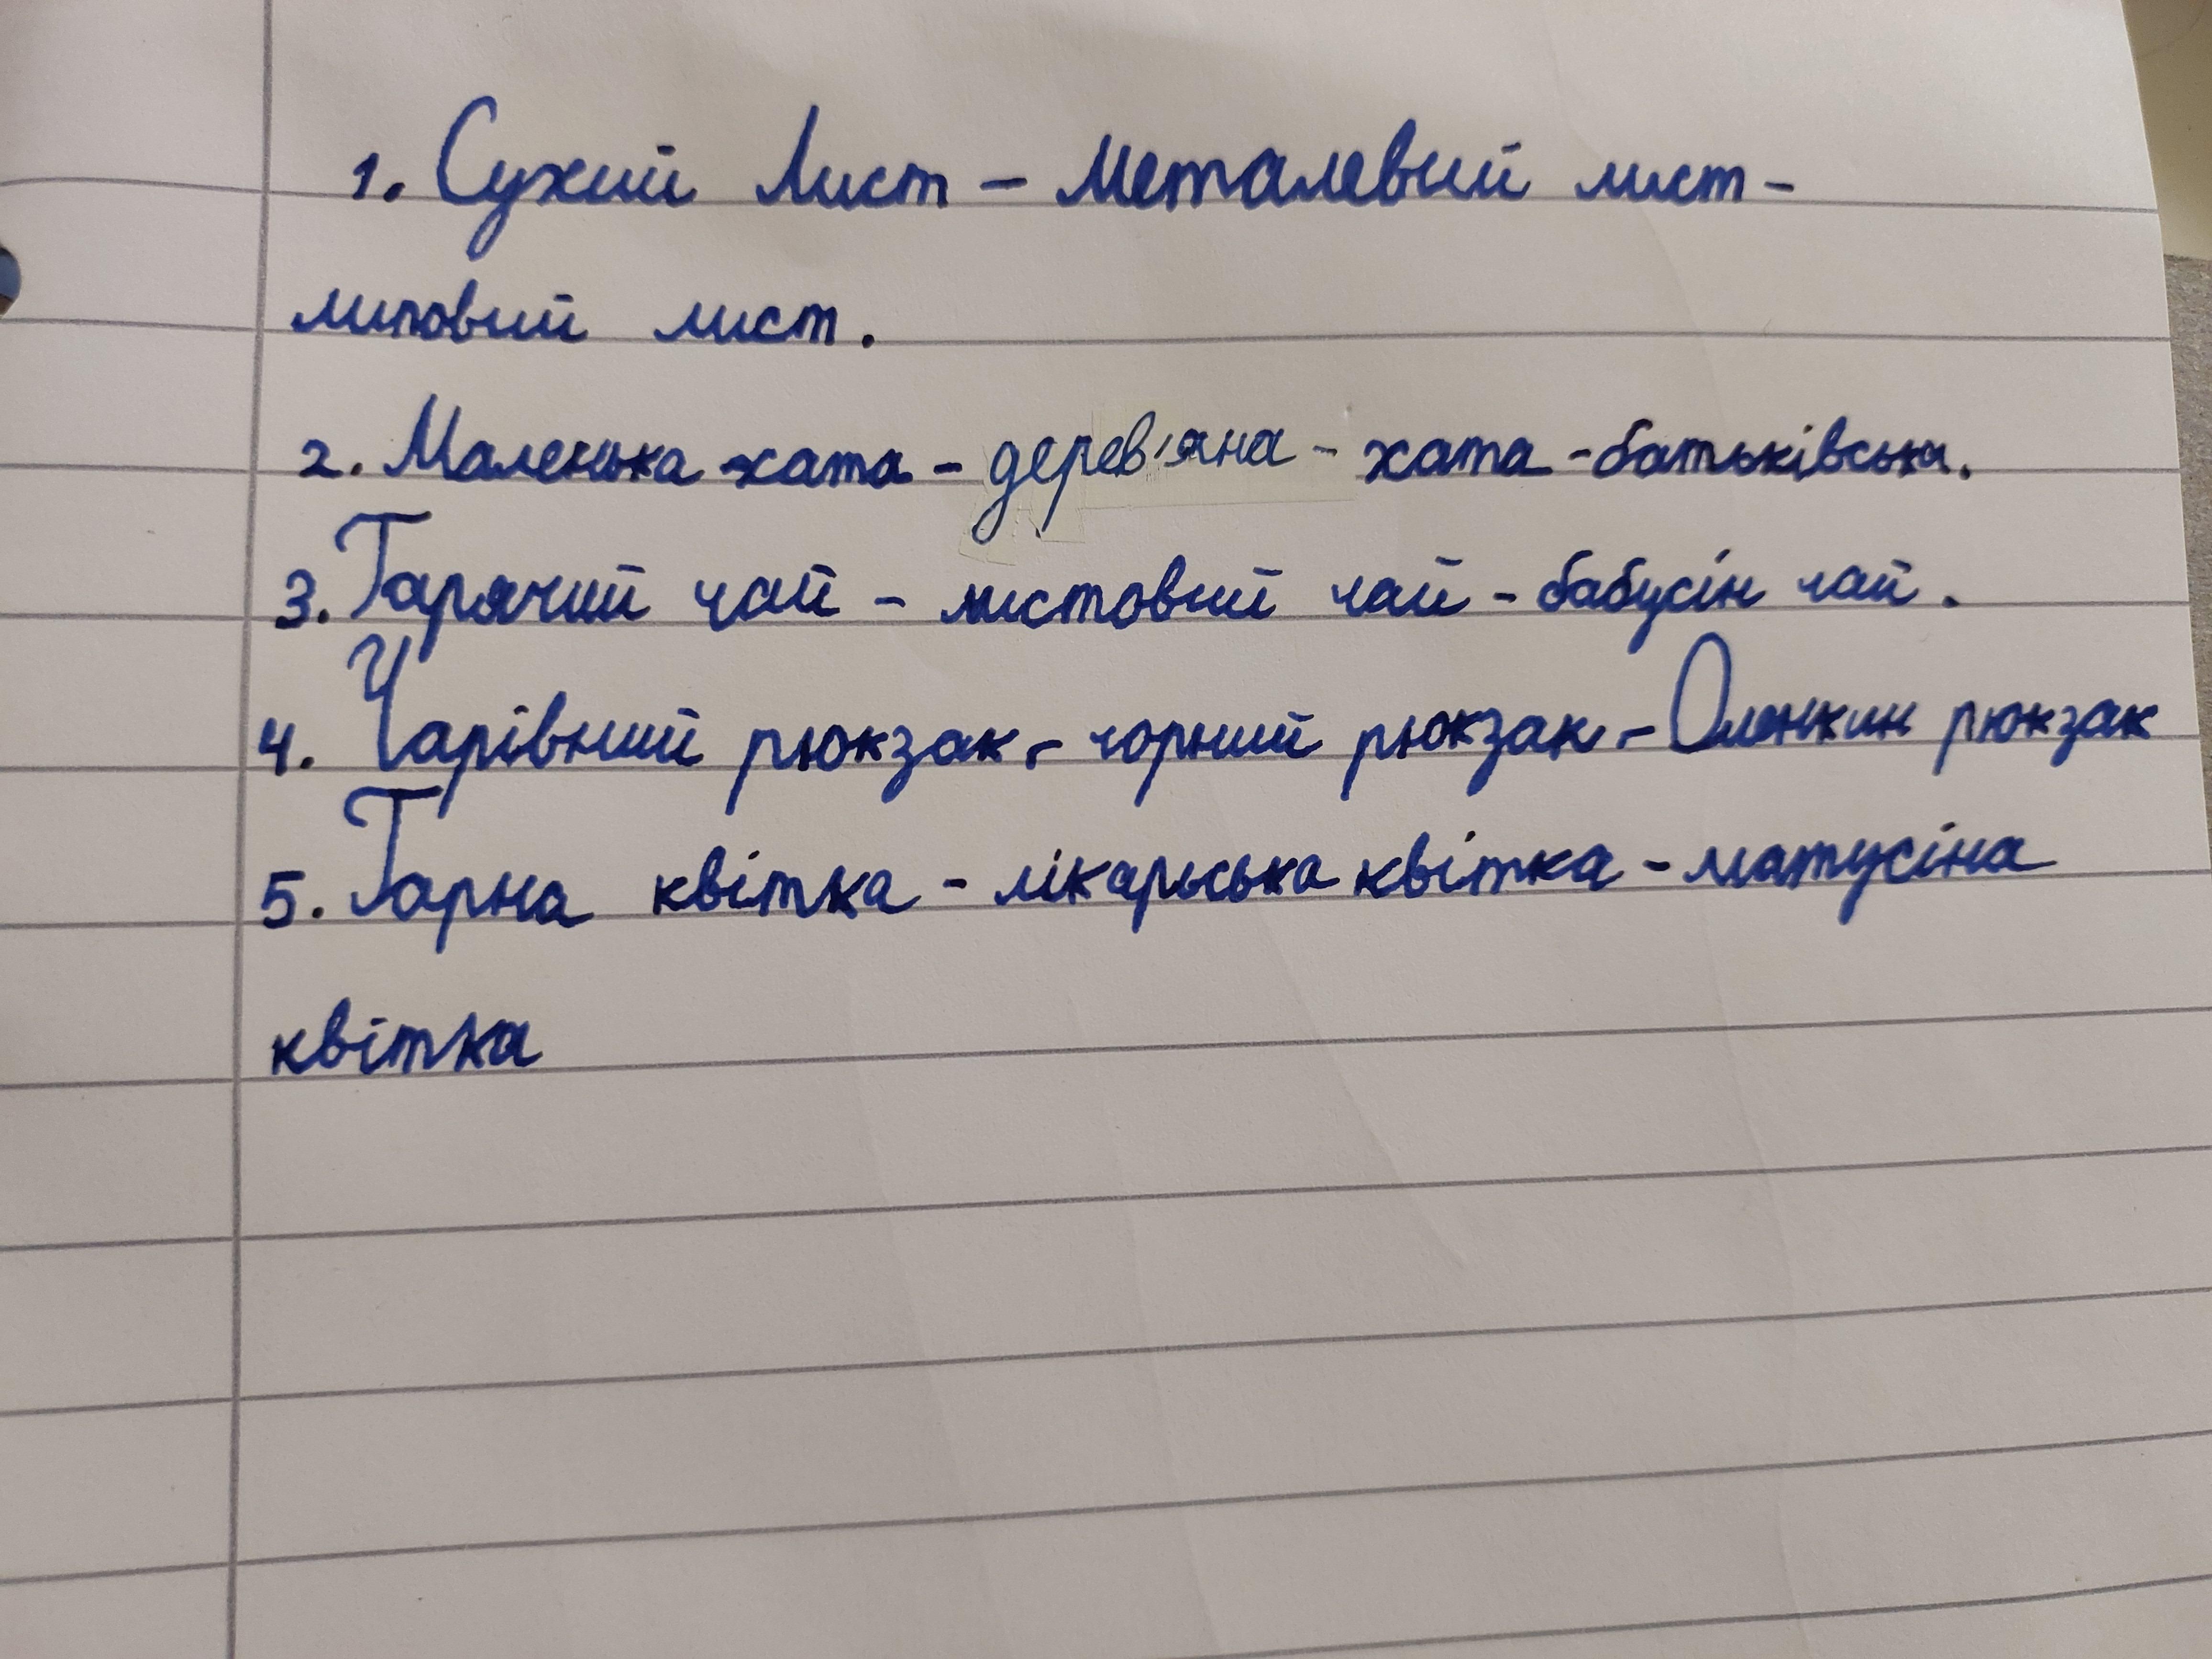 1. Сухий Лист – Металевий лист -
липовий лист.
2. Маленька хата - дерев'яна - хата - батьківська.
3. Гарячий чай - листовий чай - бабусін чай.
4. Чарівний рюкзак, - чорний рюкзак, - Оленкин рюкзак
5. Гарна квітка - лікарська квітка - матусіна
квітка